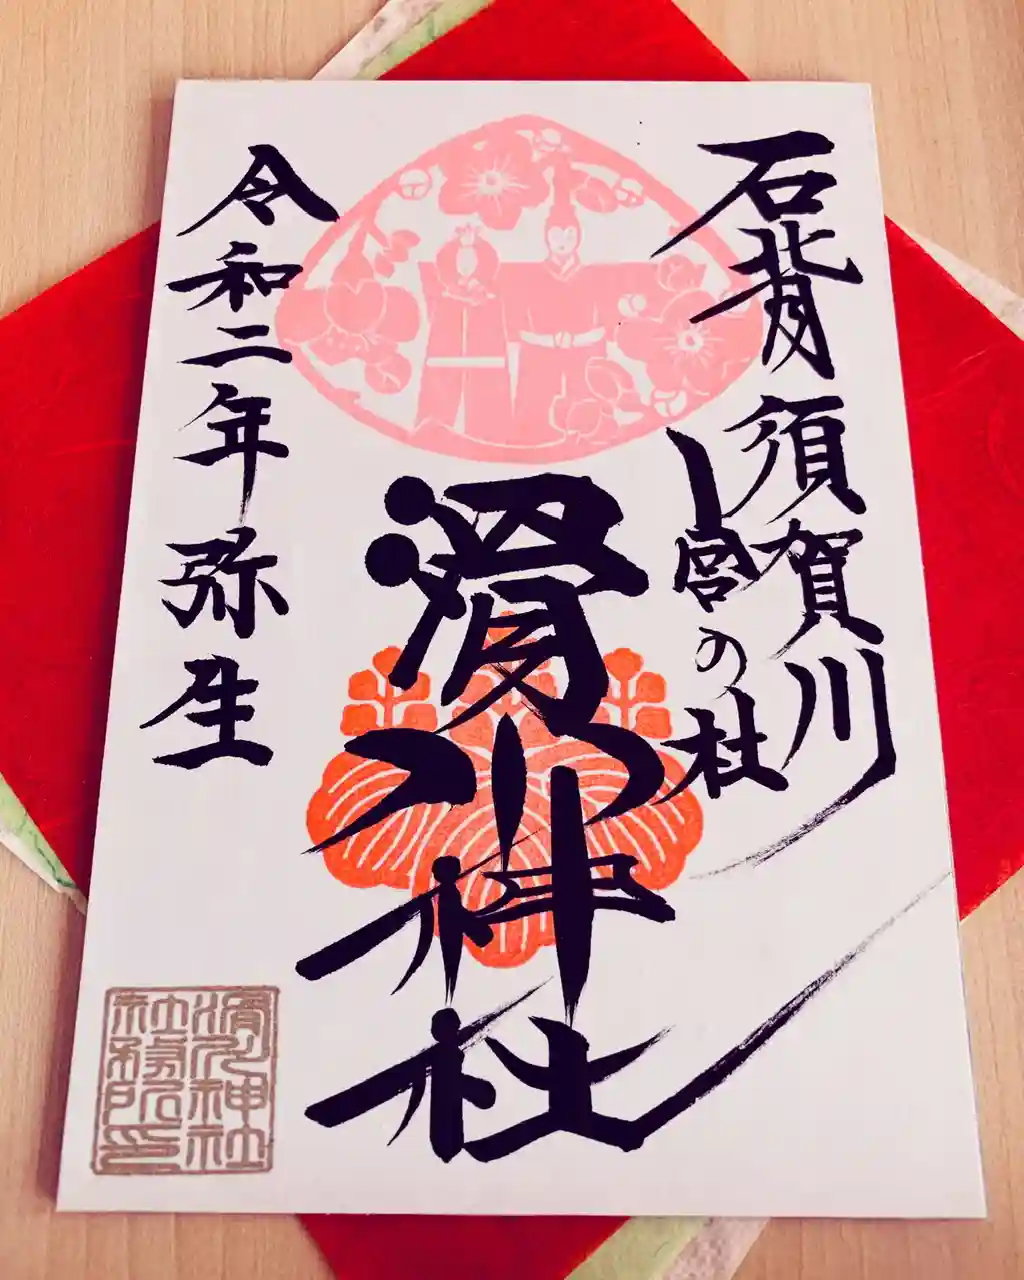 石背 須賀川
宮の杜
滑川神社
令和二年弥生
滑川神社
社務所印